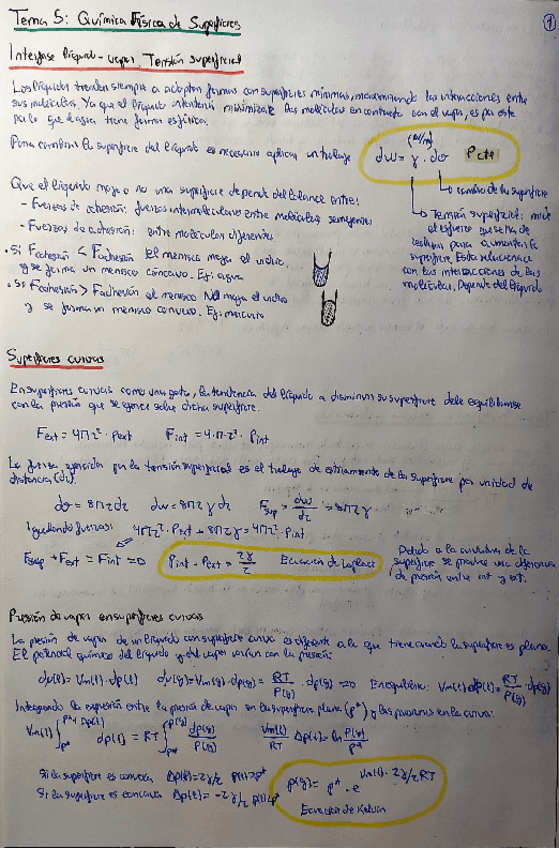 Tema 5: Química Física de Superficies
1
Interfase líquido-vapor. Tensión superficial
Los líquidos tienden siempre a adoptar formas con superficies mínimas, maximizando las interacciones entre
sus moléculas. Ya que el líquido intentará minimizar las moléculas en contacto con el vapor, es por esto
por lo que el agua tiene forma esférica.
Para cambiar la superficie del líquido es necesario aplicar un trabajo
(N/m)
dw = γ · dσ P cte
cambio de la superficie
Tensión superficial: mide
el esfuerzo que se ha de
realizar para aumentar la
superficie. Está relacionada
con las interacciones de las
moléculas. Depende del líquido
Que el líquido moje o no una superficie depende del balance entre:
- Fuerzas de cohesión: fuerzas intermoleculares entre moléculas semejantes
- Fuerzas de adhesión: entre moléculas diferentes
· Si Fcohesión < Fadhesión el menisco moja el vidrio
y se forma un menisco cóncavo. Ej: agua
· Si Fcohesión > Fadhesión el menisco NO moja el vidrio
y se forma un menisco convexo. Ej: mercurio
Superficies curvas
En superficies curvas como una gota, la tendencia del líquido a disminuir su superficie debe equilibrarse
con la presión que se ejerce sobre dicha superficie.
Fext = 4πr² · Pext Fint = 4·π·r² · Pint
La fuerza ejercida por la tensión superficial es el trabajo de estiramiento de la superficie por unidad de
distancia (dr).
dσ = 8πrdr dw = 8πrγdr Fsup = dw/dr = 8πrγ
Igualando fuerzas: 4πr² · Pext + 8πrγ = 4πr² · Pint
Fsup + Fext = Fint = 0 Pint - Pext = 2γ/r Ecuación de Laplace
Debido a la curvatura de la
superficie se produce una diferencia
de presión entre int y ext.
Presión de vapor en superficies curvas
La presión de vapor de un líquido con superficie curva es diferente a la que tiene cuando la superficie es plana.
El potencial químico del líquido y del vapor varían con la presión:
dμ(l) = Vm(l) · dp(l) dμ(g) = Vm(g) · dp(g) = RT/P(g) · dP(g) = 0 En equilibrio: Vm(l) dP(l) = RT/P(g) dP(g)
Integrando la expresión entre la presión de vapor en la superficie plana (p*) y las presiones en la curva:
Vm(l) ∫p*^(p*+Δp(l)) dp(l) = RT ∫p*^p(g) dp(g)/P(g) Vm(l)/RT Δp(l) = ln P(g)/p*
Si la superficie es convexa Δp(l) = 2γ/r P(l) > p*
Si la superficie es cóncava Δp(l) = -2γ/r p(l) < p*
p(g) = p* · e^(Vm(l) · 2γ/rRT)
Ecuación de Kelvin